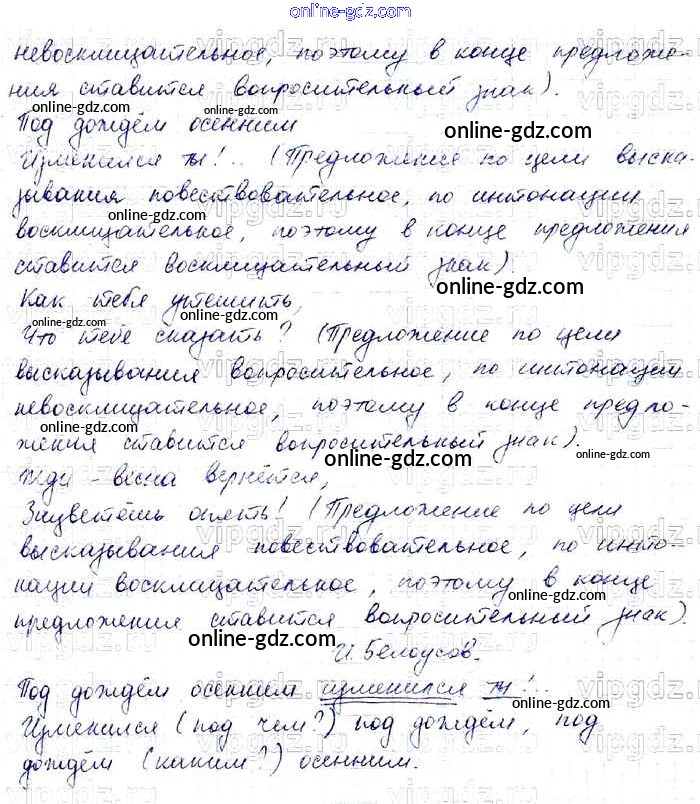 online-gdz.com
невосклицательное, поэтому в конце предложе-
ния ставится вопросительный знак).
online-gdz.com
Под дождём осенним
online-gdz.com
Изменился ты!.. (Предложение по цели выска-
зывания повествовательное, по интонации
online-gdz.com
восклицательное, поэтому в конце предложения
ставится восклицательный знак).
online-gdz.com
Как тебя утешить,
online-gdz.com
Что тебе сказать? (Предложение по цели
высказывания вопросительное, по интонации
невосклицательное, поэтому в конце предло-
жения ставится вопросительный знак).
online-gdz.com
Жди - весна вернётся,
Зацветёшь опять! (Предложение по цели
online-gdz.com
высказывания повествовательное, по инто-
нации восклицательное, поэтому в конце
предложения ставится вопросительный знак).
online-gdz.com
И. Белоусов.
Под дождём осенним изменился ты!..
online-gdz.com
Изменился (под чем?) под дождём, под
дождём (каким?) осенним.
online-gdz.com